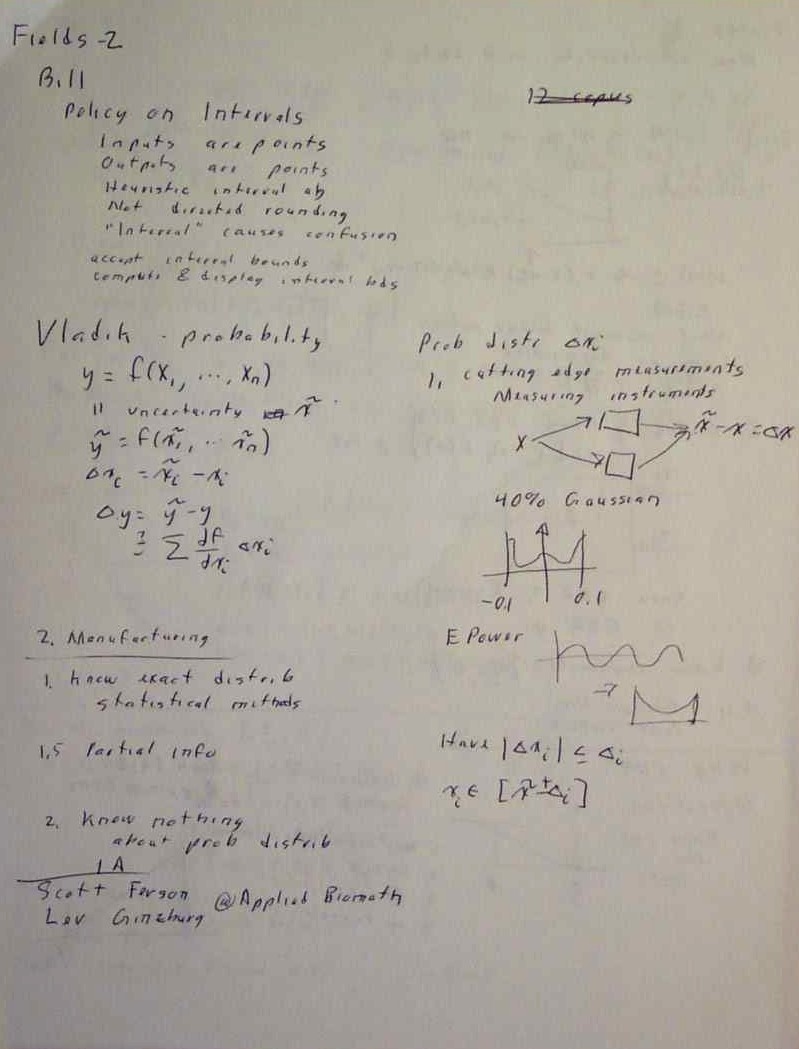 Fields-2
Bill
12 copies
Policy on Intervals
Inputs are points
Outputs are points
Heuristic interval
Not directed rounding
"Interval" causes confusion
accept interval bounds
compute & display interval bds
Vladik - probability
y = f(x₁, ..., xₙ)
11 uncertainty x̃
ỹ = f(x̃₁, ... x̃ₙ)
Δxᵢ = x̃ᵢ - xᵢ
Δy = ỹ - y
≟ Σ df/dxᵢ Δxᵢ
Prob distr Δxᵢ
1, cutting edge measurements
Measuring instruments
x x̃ - x = Δx
40% Gaussian
-0.1 0.1
2. Manufacturing
E Power
1. know exact distrib
statistical methods
1.5 Partial info
Have |Δxᵢ| ≤ Δᵢ
xᵢ ∈ [x̃ ± Δᵢ]
2. Know nothing
about prob distrib
IA
Scott Ferson @Applied Biomath
Lev Ginzburg